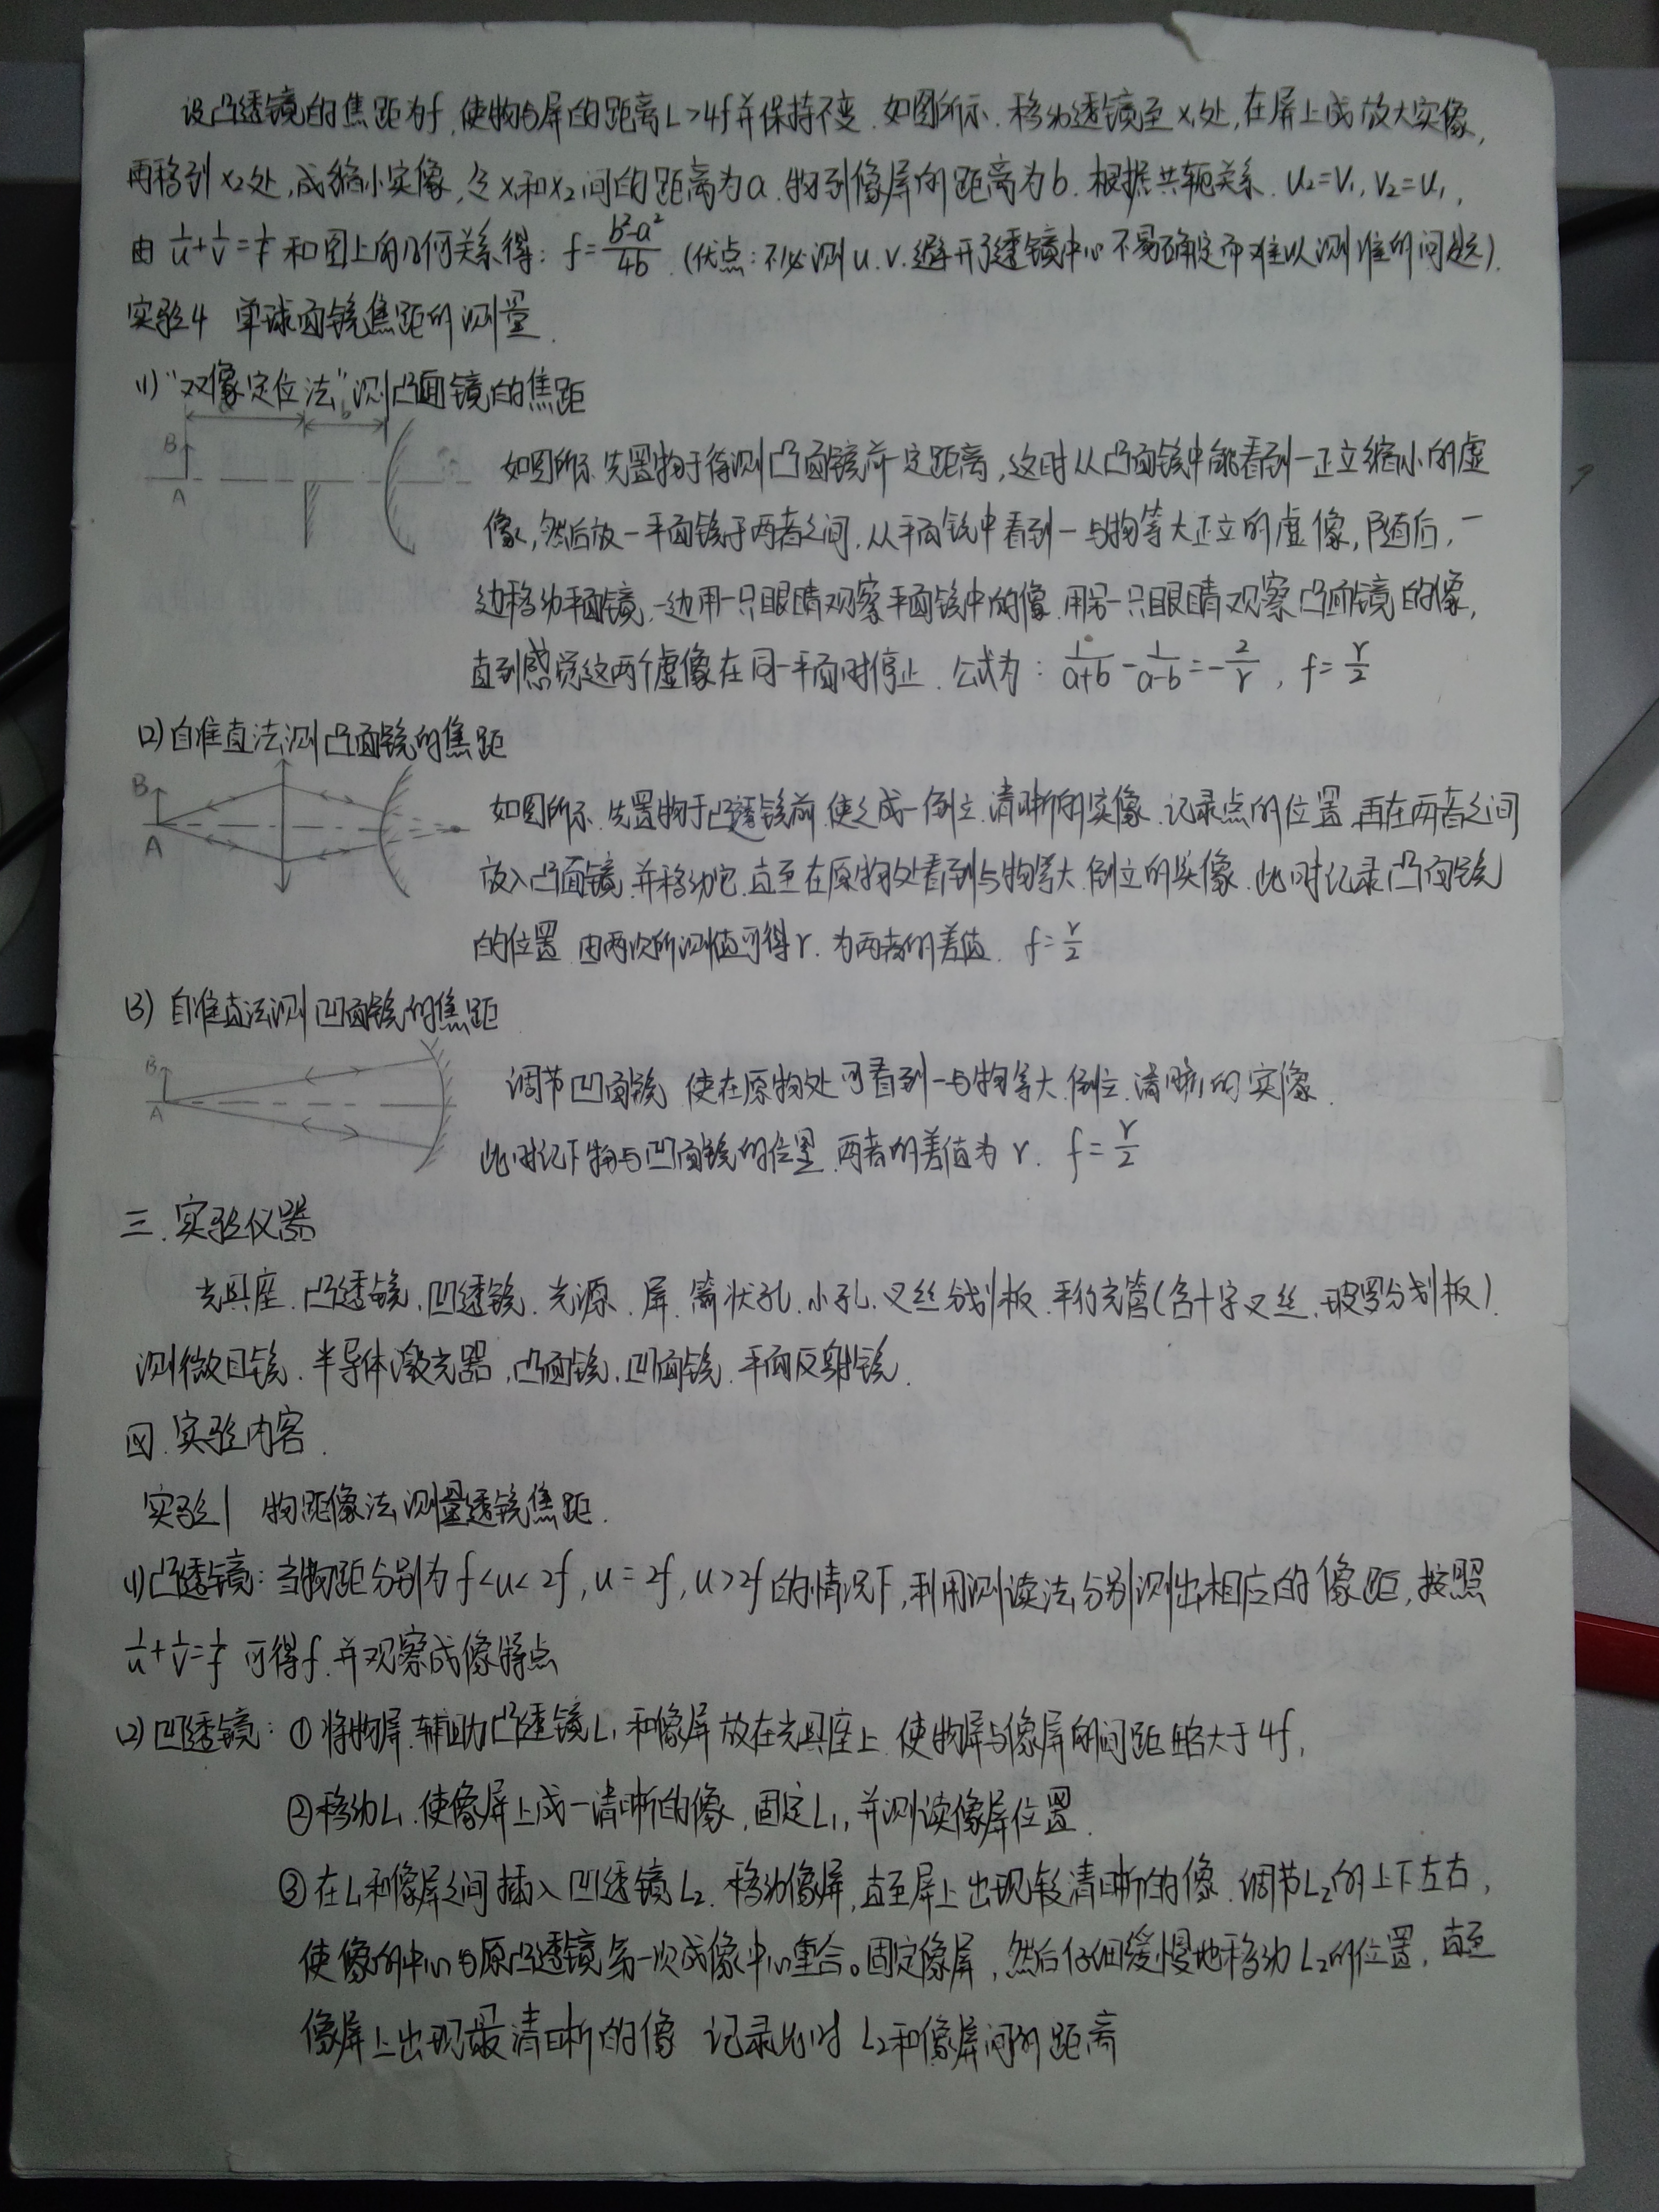 设凸透镜的焦距为f,使物与屏的距离L>4f并保持不变.如图所示.移动透镜至x₁处,在屏上成放大实像,
再移到x₂处,成缩小实像,令x₁和x₂间的距离为a.物到像屏的距离为b.根据共轭关系.u₂=v₁,v₂=u₁,
由1/u+1/v=1/f和图上的几何关系得:f=(b²-a²)/4b.(优点:不必测u.v.避开了透镜中心不易确定而难以测准的问题).
实验4 单球面镜焦距的测量.
(1)"双像定位法"测凸面镜的焦距
a b
B
A
如图所示.先置物于待测凸面镜前一定距离,这时从凸面镜中能看到一正立缩小的虚
像,然后放一平面镜于两者之间,从平面镜中看到一与物等大正立的虚像,随后,一
边移动平面镜,一边用一只眼睛观察平面镜中的像.用另一只眼睛观察凸面镜的像,
直到感觉这两个虚像在同一平面时停止.公式为:1/(a+b)-1/(a-b)=-2/r,f=r/2
(2)自准直法测凸面镜的焦距
B
A
如图所示.先置物于凸透镜前.使之成一倒立.清晰的实像.记录点的位置.再在两者之间
放入凸面镜.并移动它.直至在原物处看到与物等大.倒立的实像.此时记录凸面镜
的位置.由两次所测值可得r.为两者的差值.f=r/2
(3)自准直法测凹面镜的焦距
B
A
调节凹面镜.使在原物处可看到一与物等大.倒立.清晰的实像.
此时记下物与凹面镜的位置.两者的差值为r.f=r/2
三.实验仪器
光具座.凸透镜.凹透镜.光源.屏.箭状孔.小孔.叉丝分划板.平行光管(含十字叉丝.玻罗分划板).
测微目镜.半导体激光器,凸面镜.凹面镜.平面反射镜.
四.实验内容.
实验1 物距像法测量透镜焦距.
(1)凸透镜:当物距分别为f<u<2f,u=2f,u>2f的情况下,利用测读法分别测出相应的像距,按照
1/u+1/v=1/f可得f.并观察成像特点
(2)凹透镜:①将物屏.辅助凸透镜L₁和像屏放在光具座上.使物屏与像屏的间距略大于4f,
②移动L₁.使像屏上成一清晰的像.固定L₁,并测读像屏位置.
③在L₁和像屏之间插入凹透镜L₂.移动像屏,直至屏上出现较清晰的像.调节L₂的上下左右,
使像的中心与原凸透镜第一次成像中心重合。固定像屏,然后仔细缓慢地移动L₂的位置,直至
像屏上出现最清晰的像 记录此时L₂和像屏间的距离